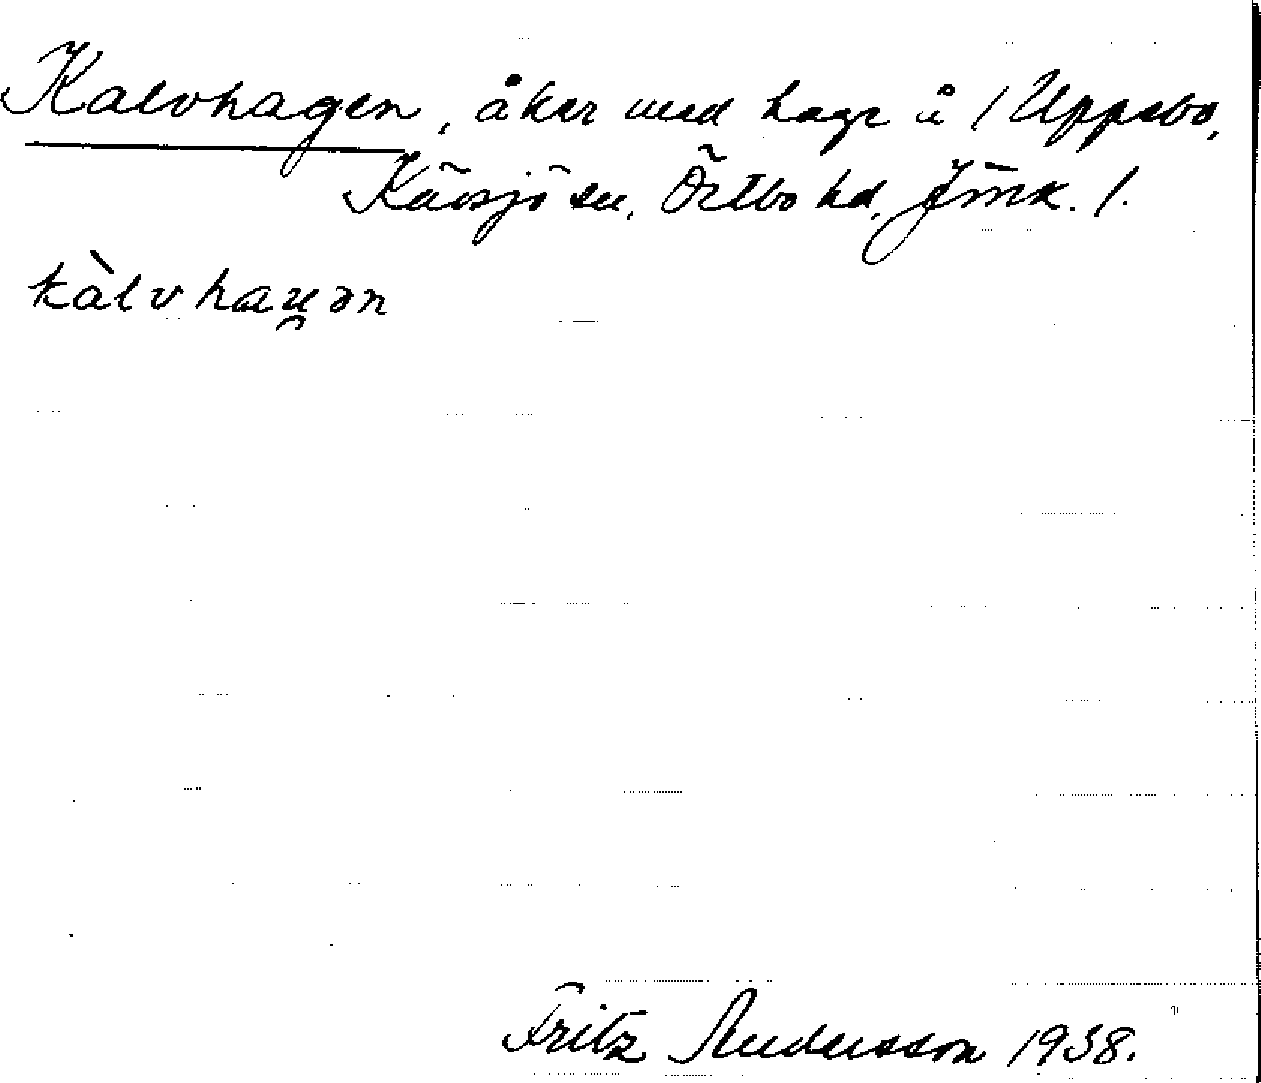 Kalvhagen, åker med hage å 1 Uppebo,
Kävsjö sn, Östbo hd, Jönk. l.
kàlvhau̯ən
Fritz Andersson 1938.